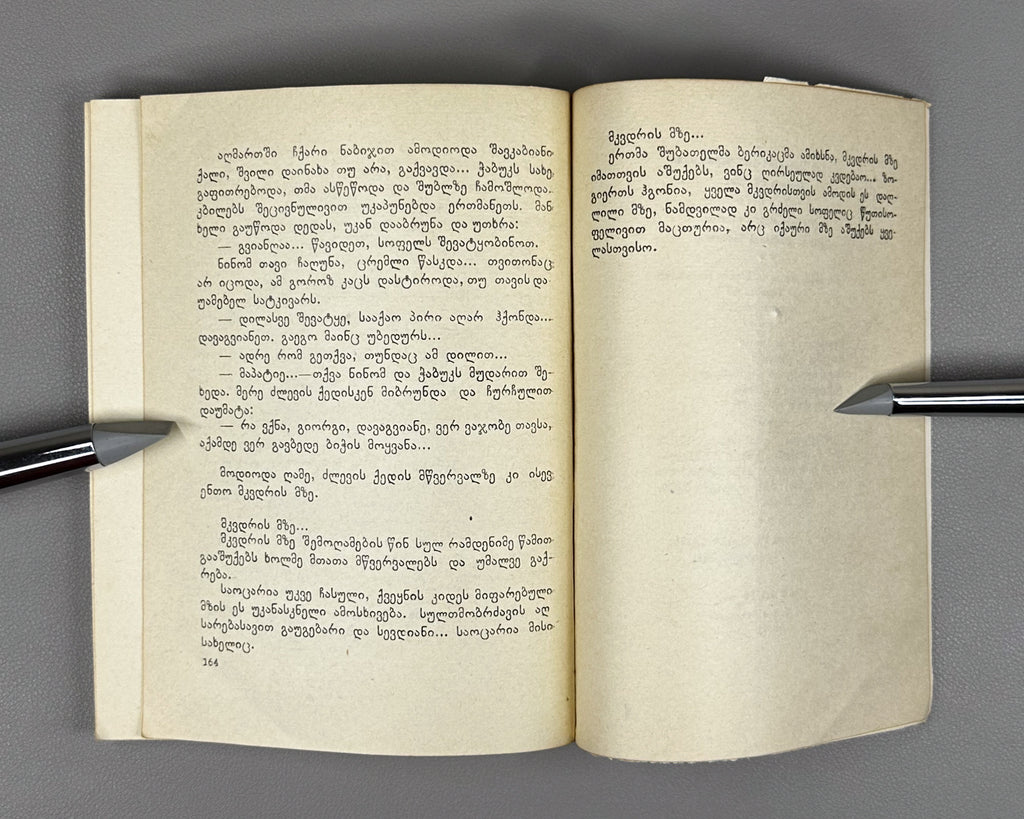 აღმართში ჩქარი ნაბიჯით ამოდიოდა შავკაბიანი
ქალი, შვილი დაინახა თუ არა, გაქვავდა... ჭაბუკს სახე
გაფითრებოდა, თმა ასწეწოდა და შუბლზე ჩამოშლოდა.
კბილებს შეცივნულივით უკაპუნებდა ერთმანეთს. მან
ხელი გაუწოდა დედას, უკან დააბრუნა და უთხრა:
— გვიანღაა... წავიდეთ, სოფელს შევატყობინოთ.
ნინომ თავი ჩაღუნა, ცრემლი წასკდა... თვითონაც
არ იცოდა, ამ გოროზ კაცს დასტიროდა, თუ თავის და-
უამებელ სატკივარს.
— დილასვე შევატყე, სააქაო პირი აღარ ჰქონდა...
დავაგვიანეთ. გაეგო მაინც უბედურს...
— ადრე რომ გეთქვა, თუნდაც ამ დილით...
— მაპატიე...—თქვა ნინომ და ჭაბუკს მუდარით შე-
ხედა. მერე ძლევის ქედისკენ მიბრუნდა და ჩურჩულით
დაუმატა:
— რა ვქნა, გიორგი, დავაგვიანე, ვერ ვაჯობე თავსა,
აქამდე ვერ გავბედე ბიჭის მოყვანა...
მოდიოდა ღამე, ძლევის ქედის მწვერვალზე კი ისევ
ენთო მკვდრის მზე.
მკვდრის მზე...
მკვდრის მზე შემოღამების წინ სულ რამდენიმე წამით
გააშუქებს ხოლმე მთათა მწვერვალებს და უმალვე გაქ-
რება.
საოცარია უკვე ჩასული, ქვეყნის კიდეს მიფარებული
მზის ეს უკანასკნელი ამოსხივება. სულთმობრძავის აღ
სარებასავით გაუგებარი და სევდიანი... საოცარია მისი
სახელიც.
164
მკვდრის მზე...
ერთმა შუბათელმა ბერიკაცმა ამიხსნა, მკვდრის მზე
იმათთვის აშუქებს, ვინც ღირსეულად კვდებაო... ზო-
გიერთს ჰგონია, ყველა მკვდრისთვის ამოდის ეს დაღ-
ლილი მზე, ნამდვილად კი გრძელი სოფელიც წუთისო-
ფელივით მაცთურია, არც იქაური მზე აშუქებს ყვე-
ლასთვისო.